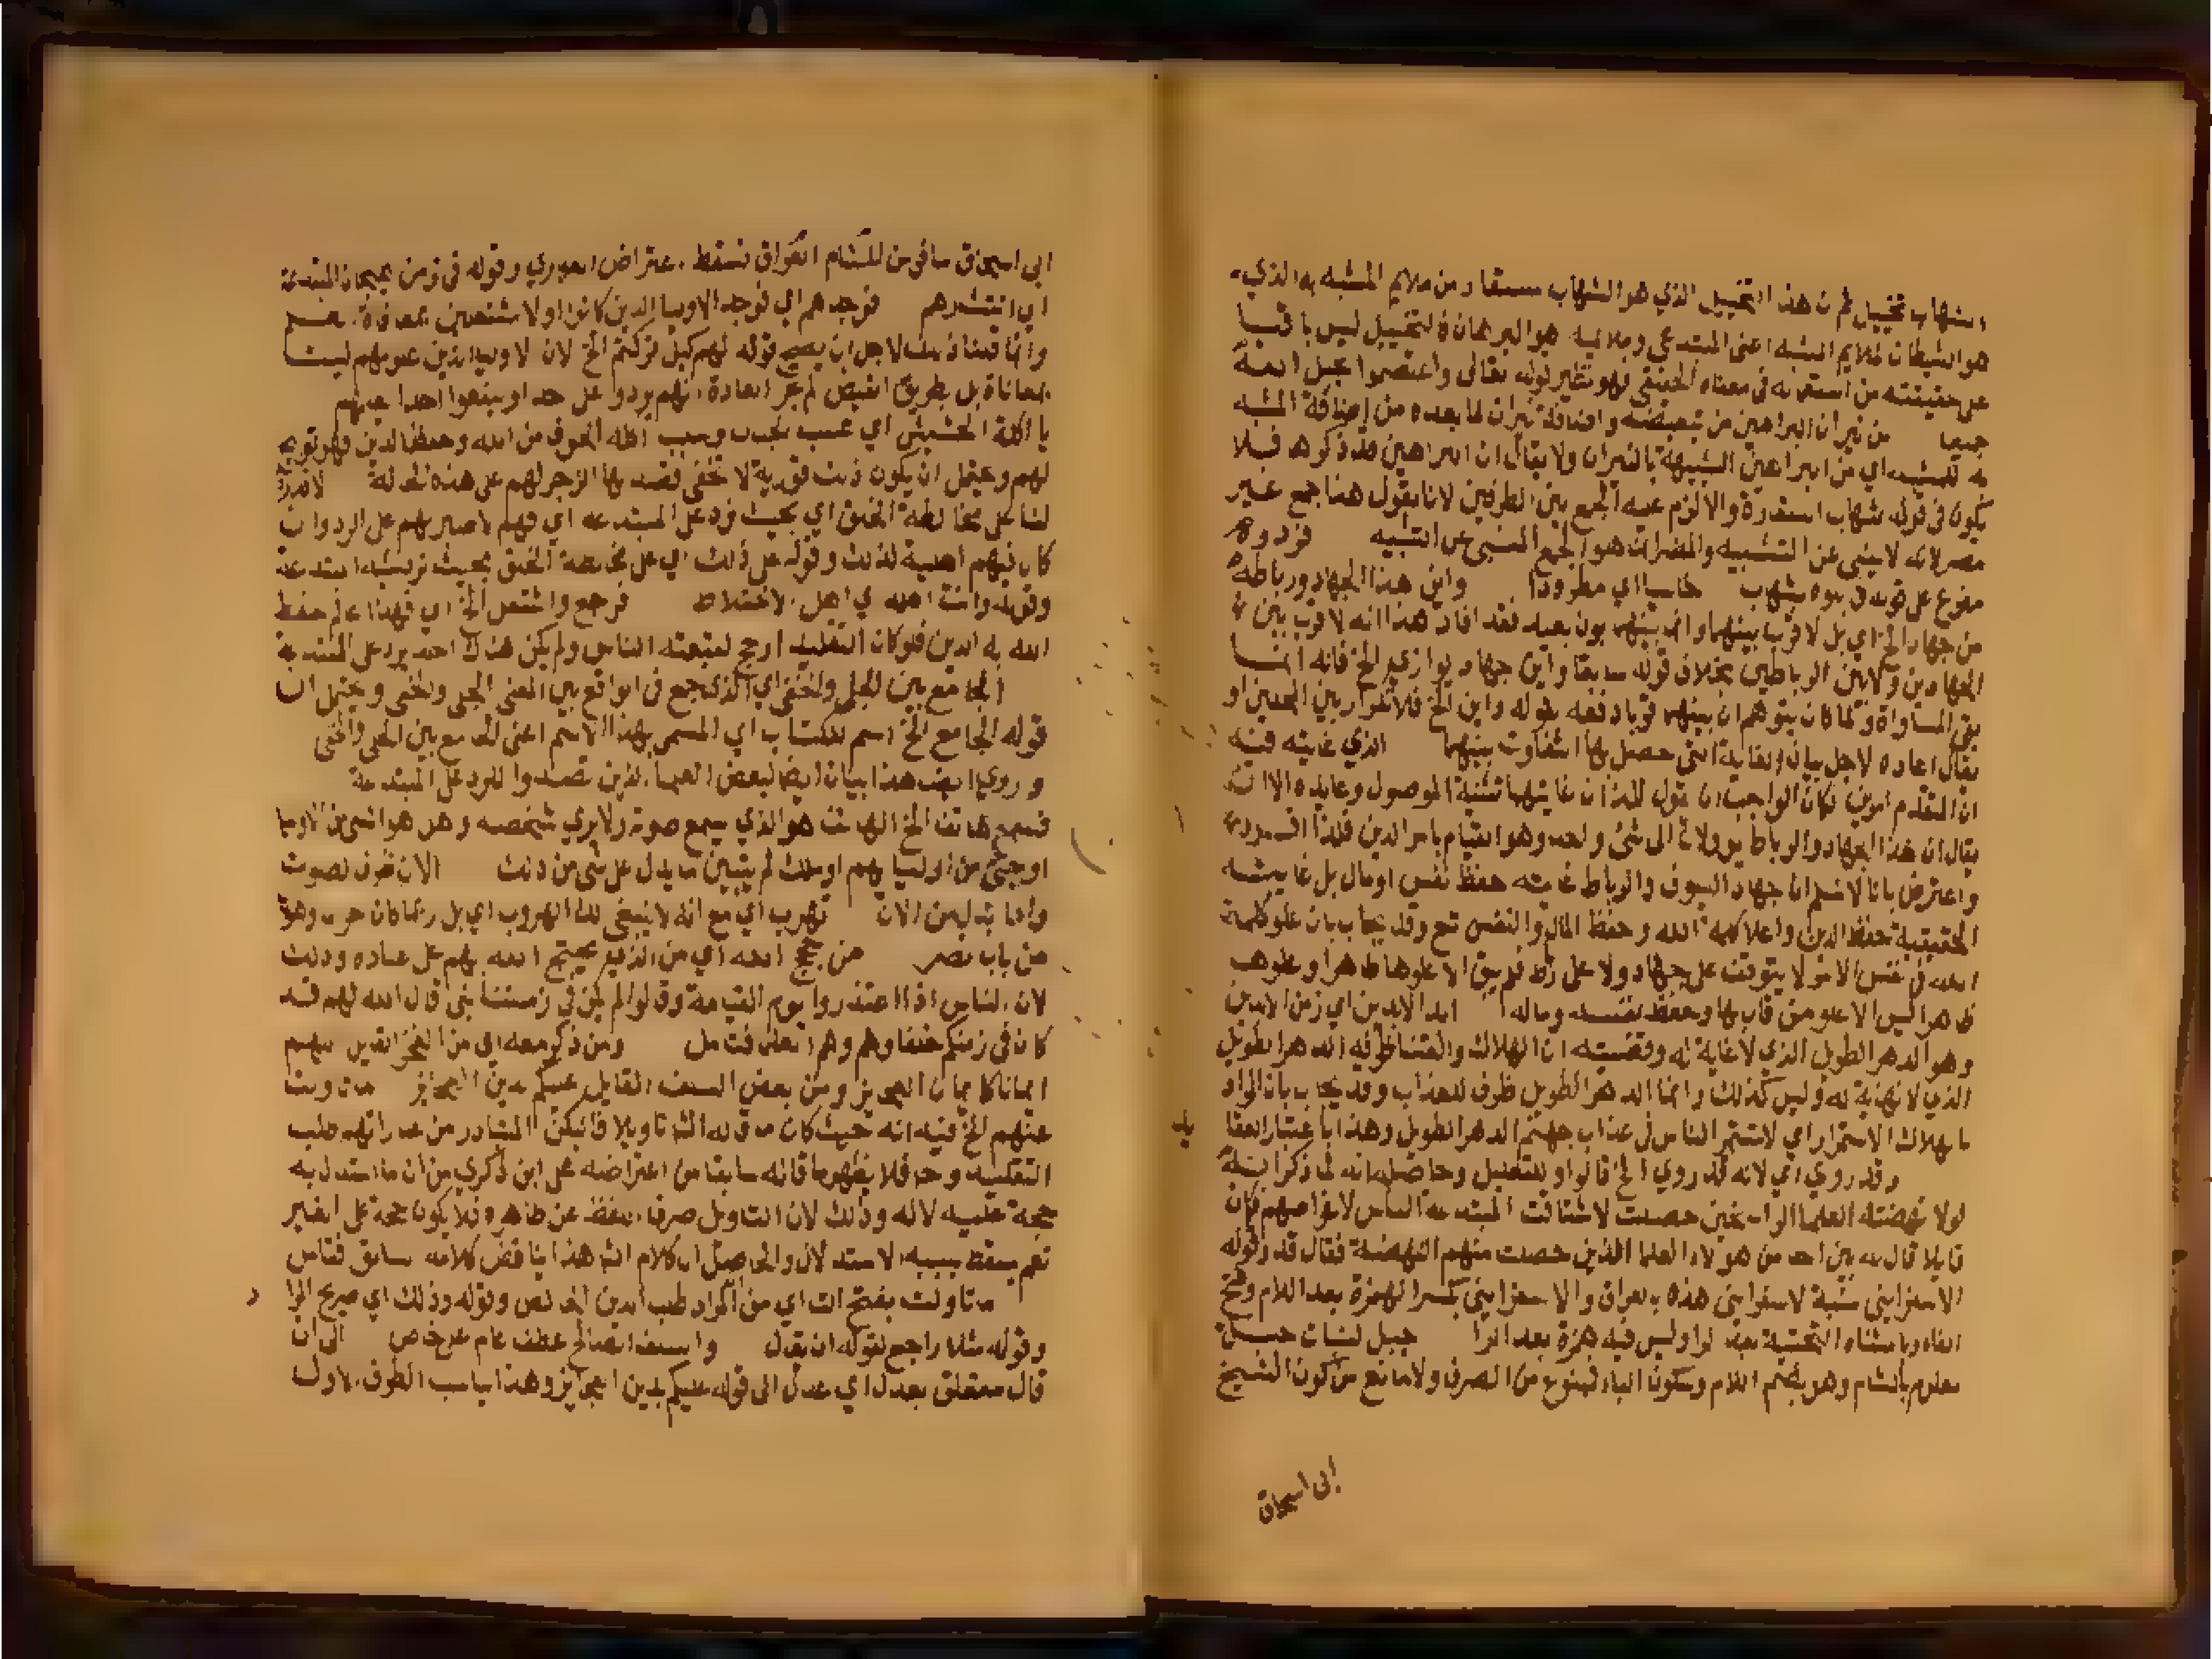 الشهاب تخييل ثم ان هذا التخييل الذي هو الشهاب مستعار من ملايم المشبه به الذي
هو الشيطان لملايم المشبه اعنى المبتدعى وملايمه هو البرهان فالتخييل ليس باقيا
على حقيقته من استعماله فى معناه الحقيقى فهو نظير قوله تعالى واعتصموا بحبل الله
جميعا من نيران البراهين من تبعيضية واضافة نيران لما بعده من اضافة المشبه
به للمشبه اي من البراهين الشبيهة بالنيران ولا يقال ان البراهين قد ذكرها فلا
يكون فى قوله شهاب استعارة والا لزم عليه الجمع بين الطرفين لانا نقول هذا جمع غير
مضر لانه لا ينبى عن التشبيه والمضر انما هو الجمع المنبى عن التشبيه فردوه
مفرع على قوله شهاب خاسيا اي مطرودا واين هذا الجهاد ورباطه
من جهاد الخ اي بل لا قرب بينهما وان بينهما بون بعيد فقد افاد هذا انه لا قرب بين
الجهادين ولا بين الرباطين بخلاف قوله سابقا واين جهاد يوازي الخ فانه انما
نفى المساواة ولما كان يتوهم ان بينهما قربا دفعه بقوله واين الخ فلا تكرار بين المحلين او
يقال اعاده لاجل بيان الغاية التى حصل بها التفاوت بينهما الذي غايته فيه
ان المتقدم امرين فكان الواجب ان يقول اللذان غايتهما بتثنية الموصول وعايده الا ان
يقال ان هذا الجهاد والرباط يؤولان الى شئ واحد وهو القيام بامر الدين فلذا افرد
واعترض بانا لا نسلم ان جهاد السيوف والرباط غايته حفظ نفس او مال بل غايته
الحقيقية حفظ الدين واعلا كلمة الله وحفظ المال والنفس تبع وقد يجاب بان علو كلمة
الله فى نفس الامر لا يتوقف على جهاد ولا على رباط الا علوها ظاهرا وعلوها
ظاهرا ليس الا علو من قام بها وحفظ نفسه وماله ابد الابدين اي زمن الابدين
وهو الدهر الطويل الذي لا غاية له وقضيته ان الهلاك فيه الدهر الطويل
الذي لا نهاية له وليس كذلك وانما الدهر الطويل ظرف للعذاب وقد يجاب بان المراد
بالهلاك الاستمرار اي لاستمر الناس فى عذاب جهنم الدهر الطويل وهذا باعتبار
وقد روي اي لانه قد روي الخ فالواو للتعليل وحاصله انه لما ذكر انه
لولا نهضة العلما الراسخين حصلت المبتدعة الناس كان
قايلا قال له بين احد من هولاء العلما الذين حصلت منهم النهضة فقال قد روي
الاسفراينى نسبة لاسفراين هذه بالعراق والاسفراينى بكسر الهمزة بعد اللام وفتح
الفاء وبالمثناة التحتية بعد الراء وليس فيه همزة بعد الراء جبل لبنان جبل
معلوم بالشام وهو بضم اللام وسكون الباء فممنوع من الصرف ولا مانع من كون الشيخ
ابى اسحاق
ابى اسحاق سافر من للشام فسقط اعتراض وقوله فى زمن المبتدعة
اي انتشرهم فوجدهم اي فوجد الاوليا الذين كانوا اولا مشتغلين
وانما قلنا ذلك لاجل ان يصح قوله لهم كيف تركتم الخ لان الاوليا الذين علومهم ليست
بمعاناة بل بطريق الفيض لم تجر العادة انهم يردوا على احد او ينفعوا احدا بعلمهم
يا اكلة الحشيش اي عشب الجبل وسبب اكله الخوف من الله وحفظ الدين فهو توبيخ
لهم ويحتمل ان يكون ذلك لا تخفى قصد بها الزجر لهم على هذه لا قدرة
لنا على مخالطة الخلق اي بحيث نرد على المبتدعة اي فهم لا صبر لهم على الرد وان
كان فيهم اهلية لذلك وقوله على ذلك اي على مخالطة الخلق بحيث نرد على المبتدعة
وقوله وانت اهله اي اهل الاختلاط فرجع واشتغل الخ اي فهذا عالم حفظ
الله به الدين فلو كان التقليد ارجح لتبعته الناس ولم يكن هناك احد يرد على المبتدعة
الجامع بين الجلي والخفى اي الذي جمع فى الواقع بين المعنى الجلى والخفى ويحتمل ان
قوله الجامع الخ اسم للكتاب اي المسمى بهذا الاسم اعنى الجامع بين الجلى والخفى
وروي ايضا هذا بيان ايضا لبعض العلما الذين تصدوا للرد على المبتدعة
فسمع هاتفا الخ الهاتف هو الذي يسمع صوته ولا يري شخصه وهل هو انسى من الاوليا
او جنى من اوليايهم او ملك لم يتبين ما يدل على شى من ذلك الان ظرف لصوت
تهرب اي مع انه لا ينبغى لك الهروب اي بل وهو
من باب نصر من حجج الله اي من الذين يحتج الله بهم على عباده وذلك
لان الناس اذا اعتذروا يوم القيامة وقالوا لم يكن فى زمننا نبى قال الله لهم قد
كان فى زمنكم خلفاوهم وهم العلما فتامل ومن ذكر معه اي من الفخر القايل اللهم
ايمانا كايمان العجايز ومن بعض السلف القايل عليكم بدين العجايز مات وبينا
عنهم الخ فيه انه حيث كان ما قاله الشـ تاويلا فليكن المتبادر من عباراتهم طلب
التقليد وح فلا يظهر ما قاله سابقا من اعتراضه على ابن ذكري من ان ما استدل به
حجة عليه لا له وذلك لان التاويل صرف اللفظ عن ظاهره فلا يكون حجة على الغير
نعم يسقط بسببه الاستدلال والحاصل ان كلام الشـ هذا يناقض كلامه سابق فتامل
ما تاولت بفتح التا اي من المراد طلب الدين وقوله وذلك اي صريح
وقوله مثلا راجع لقوله ان يقال والسلف الصالح عطف عام على خاص الى ان
قال متعلق بعدل اي عدل الى قوله عليكم بدين العجايز وهذا يناسب الطرف الاول